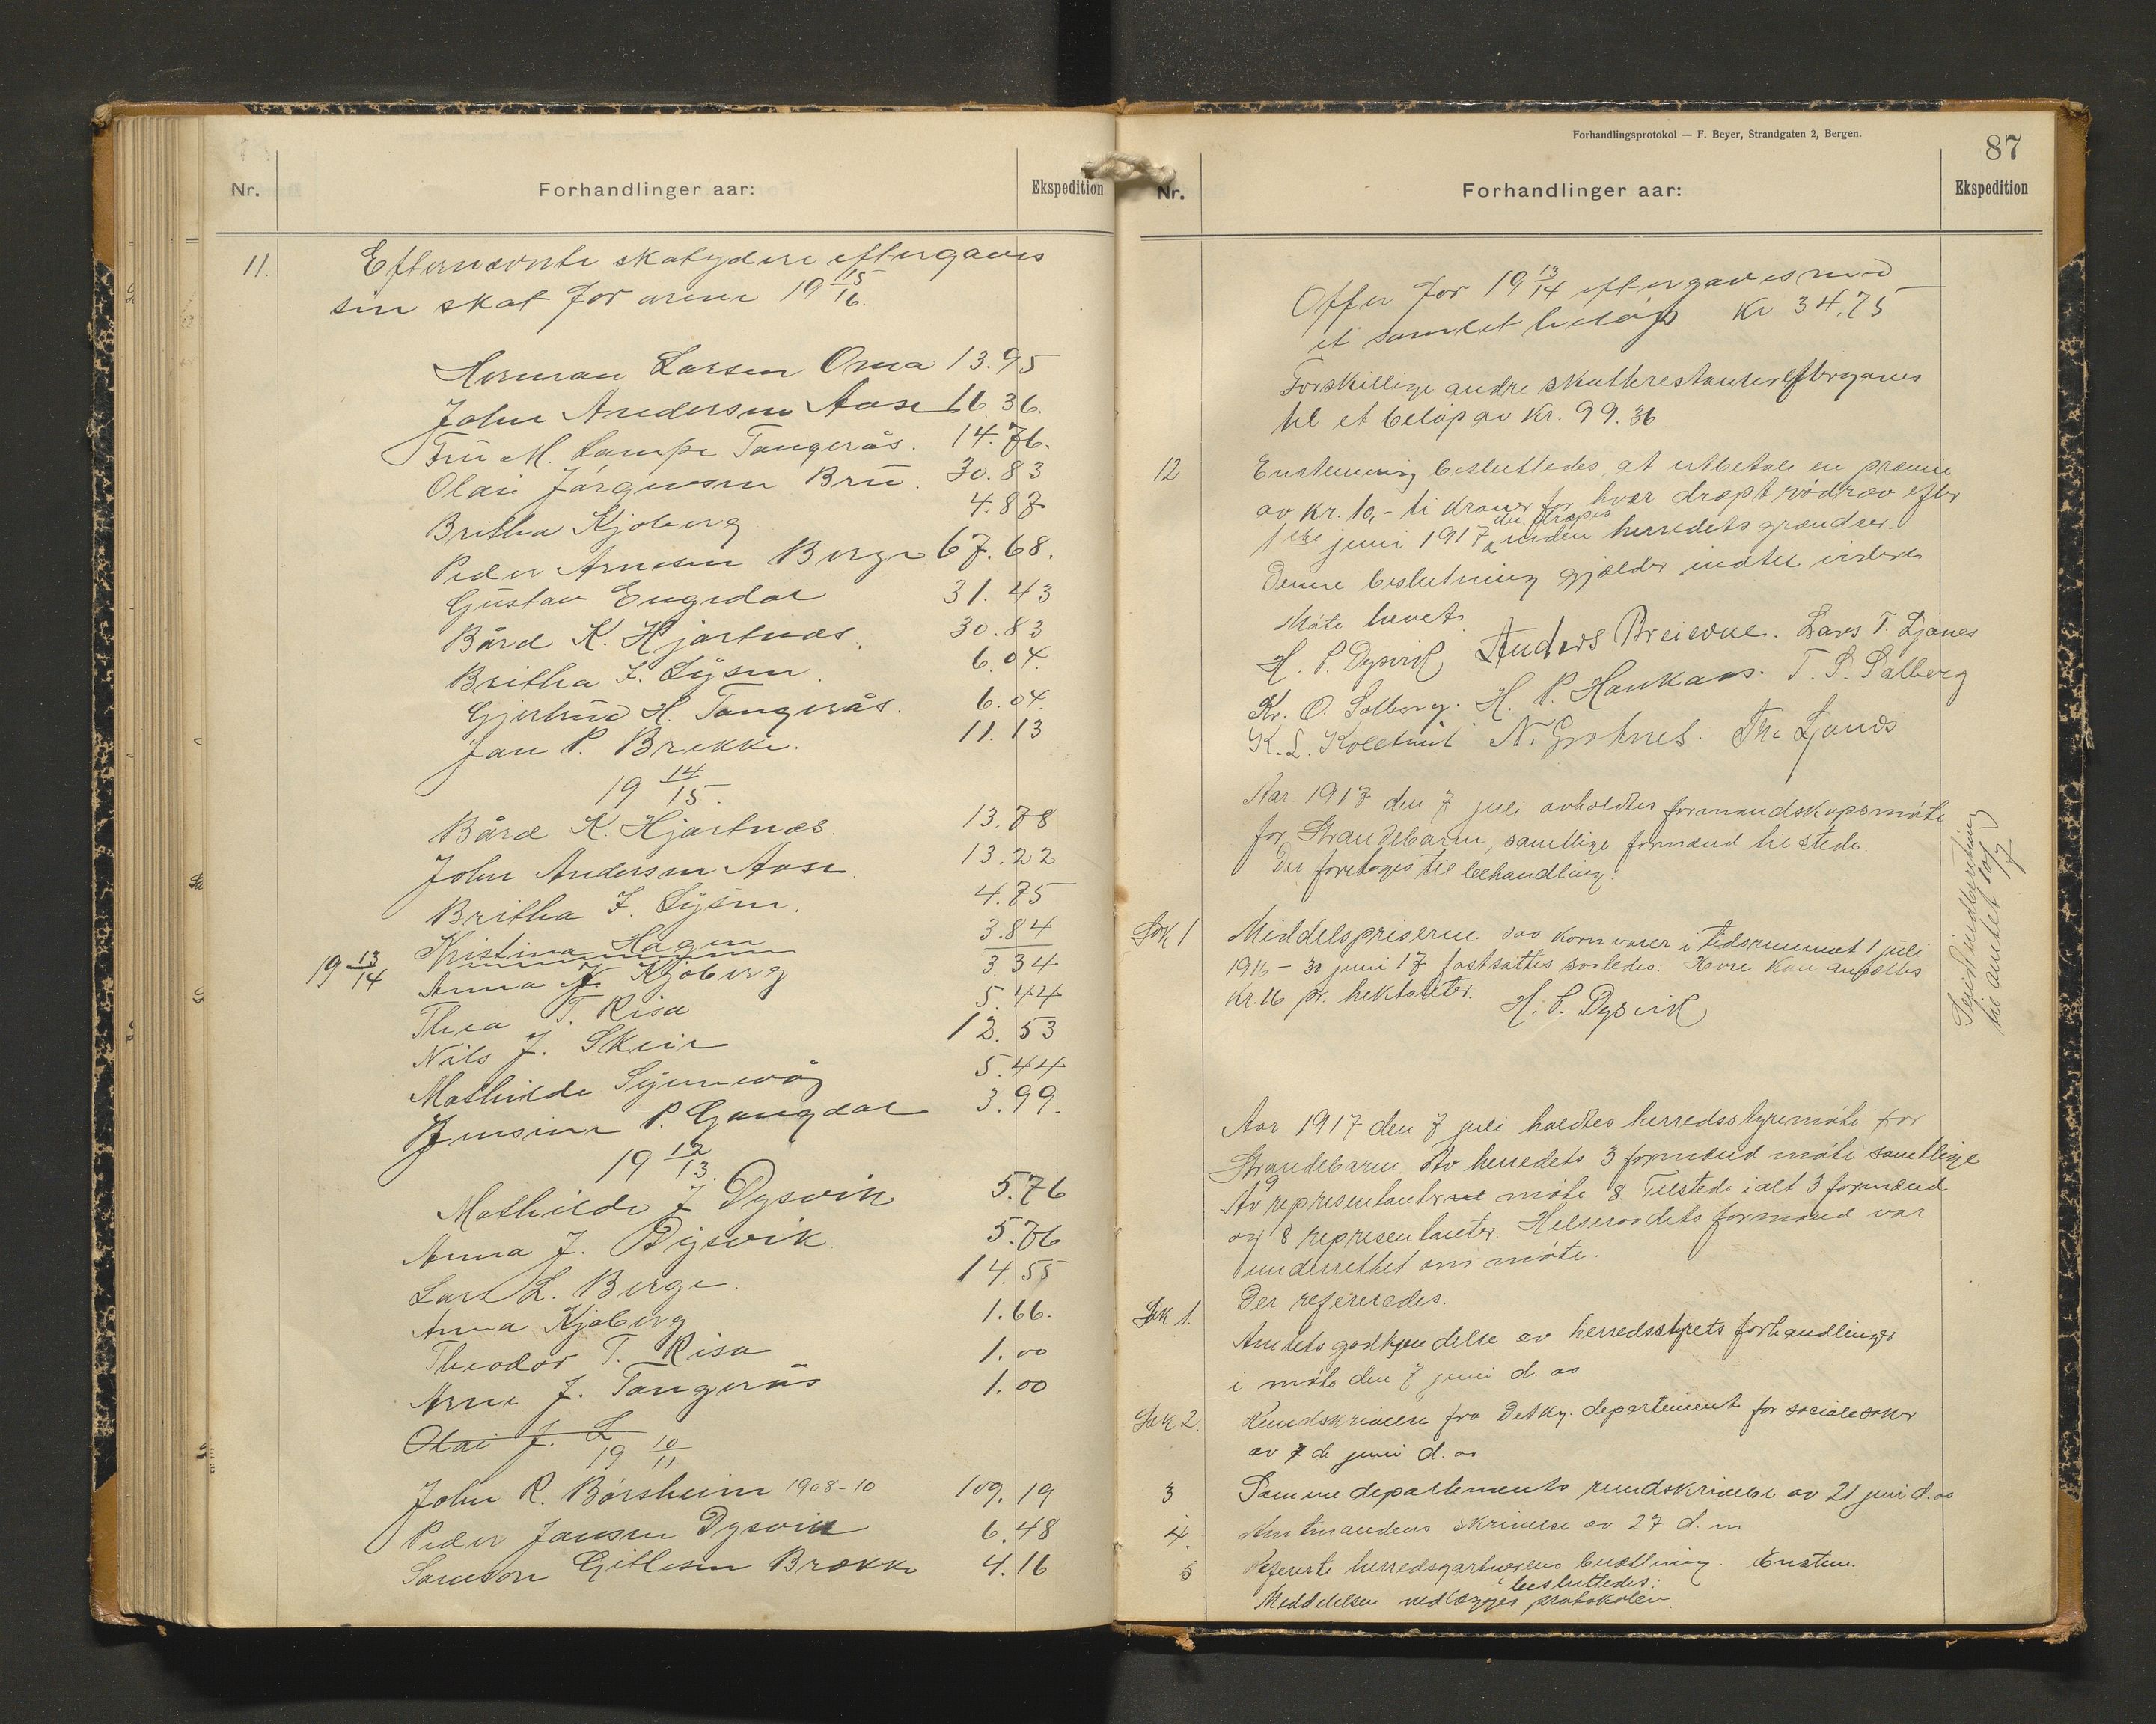 Nr.
Forhandlinger aar:
Ekspedition
11.
Efternævnte skatydere eftergaves
sin skat for arene 19 15/16.
Herman Larsen Oma 13.95
John Andersen Aase 16.36.
Fru M. Lampe Tangerås. 14.76.
Olai Jørgensen Bru. 30.83
Britha Kjøberg 4.87
Peder Arnesen Berge 67.68.
Gustav Engedal 31.43
Bård K. Hjartnæs. 30.83
Britha J. Lysen. 6.04.
Gjertrud H. Tangerås. 6.04.
Jan P. Brekke. 11.13
19 14/15.
Bård K. Hjartnæs. 13.78
John Andersen Aase. 13.22
Britha J. Lysen. 4.75
Kristina Hagen 3.84
19 13/14 Anna J. Kjøberg 3.34
Thea T. Risa 5.44
Nils J. Skeie 12.53
Mathilde Synnevåg 5.44
Jensine P. Gangdal 3.99.
19 12/13.
Mathilde J Dysvik 5.76
Anna J. Dysvik 5.76
Lars L. Berge. 14.55
Anna Kjøberg 1.66.
Theodor T. Risa 1.00
Arne J. Tangerås 1.00
Olai J. L
19 10/11
John R. Børsheim 1908-10 109.19
Peder Jansen Dysvik 6.48
Samson Gitlesen Brække 4.16
Forhandlingsprotokol — F. Beyer, Strandgaten 2, Bergen.
87
Nr.
Forhandlinger aar:
Ekspedition
Offer for 19 13/14 eftergaves med
et samlet beløp Kr 34.75
Forskillige andre skatterestanser eftergaves
til et beløp av Kr. 99.36
12 Enstemmig besluttedes at utbetale en præmie
av Kr. 10,- ti kroner for hver dræpt rødræv efter
1ste juni 1917 der dræpes inden herredets grændser.
Denne beslutning gjælder indtil videre
Møte hævet.
H. P. Dysvik Anders Breievne. Lars T. Ljones
Kr. O. Solberg. H. P. Haukaas. T. S. Salberg
K. L. Kolltveit N. Grøtnes. Th. Ljones
Aar 1917 den 7 juli avholdtes formandskapsmøte
for Strandebarm, samtlige formænd tilstede.
Der foretoges til behandling:
Sak 1 Middelspriserne paa kornvarer i tidsrummet 1 juli
1916 - 30 juni 17 fastsattes saaledes: Havre kan ansættes
Kr. 16 pr. hektoliter.
H. P. Dysvik
til amtet 10/7
Aar 1917 den 7 juli holdtes herredsstyremøte for
Strandebarm. Av herredets 3 formænd møtte samtlige
Av representanterne møtte 8. Tilstede ialt 3 formænd
og 8 representanter. Helseraadets formand var
underrettet om møte.
Der refereredes.
Sak 1. Amtets godkjendelse av herredsstyrets forhandlinger
i møte den 7 juni d. aa
Sak 2. Rundskrivelse fra Det kg. departement for sociale saker
av 7 de juni d. aa
3 Samme departements rundskrivelse av 21 juni d. aa
4. Amtmandens skrivelse av 27 d. m
5 Refererte herredsgartnerens beretning. Enstem.
besluttedes:
Meddelelsen vedlægges protokolen.